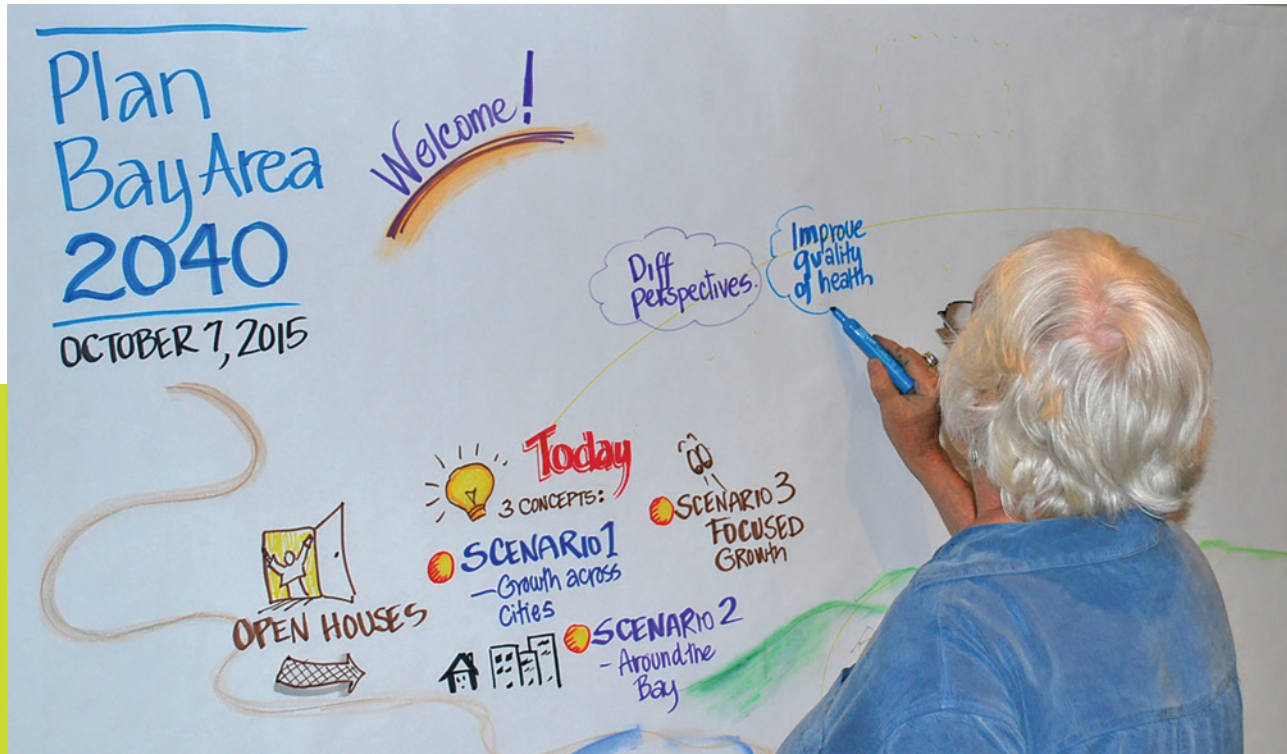 Plan
Bay Area
2040
OCTOBER 7, 2015
Welcome!
Diff
perspectives.
Improve
quality
of health
Today
3 CONCEPTS:
SCENARIO 1
- Growth across
cities
SCENARIO 2
- Around the
Bay
SCENARIO 3
FOCUSED
GROWTH
OPEN HOUSES